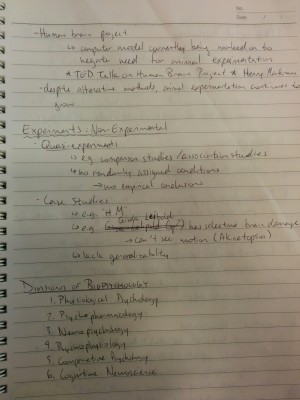 No.
Date / /
- Human brain project
↳ computer model currently being worked on to
negate need for animal experimentation
* TED Talks on Human Brain Project * Henry Markram
- despite alternative methods, animal experimentation continues to
grow
Experiments: Non-Experimental
- Quasi-experiments
↳ e.g. comparison studies / association studies
↳ no randomly assigned conditions
→ no empirical conclusions
- Case Studies
↳ e.g. "H.M"
↳ e.g. has selective brain damage
→ can't see motion (Akinetopsia)
↳ lack generalizability
Divisions of Biopsychology
1. Physiological Psychology
2. Psychopharmacology
3. Neuropsychology
4. Psychophysiology
5. Comparative Psychology
6. Cognitive Neuroscience